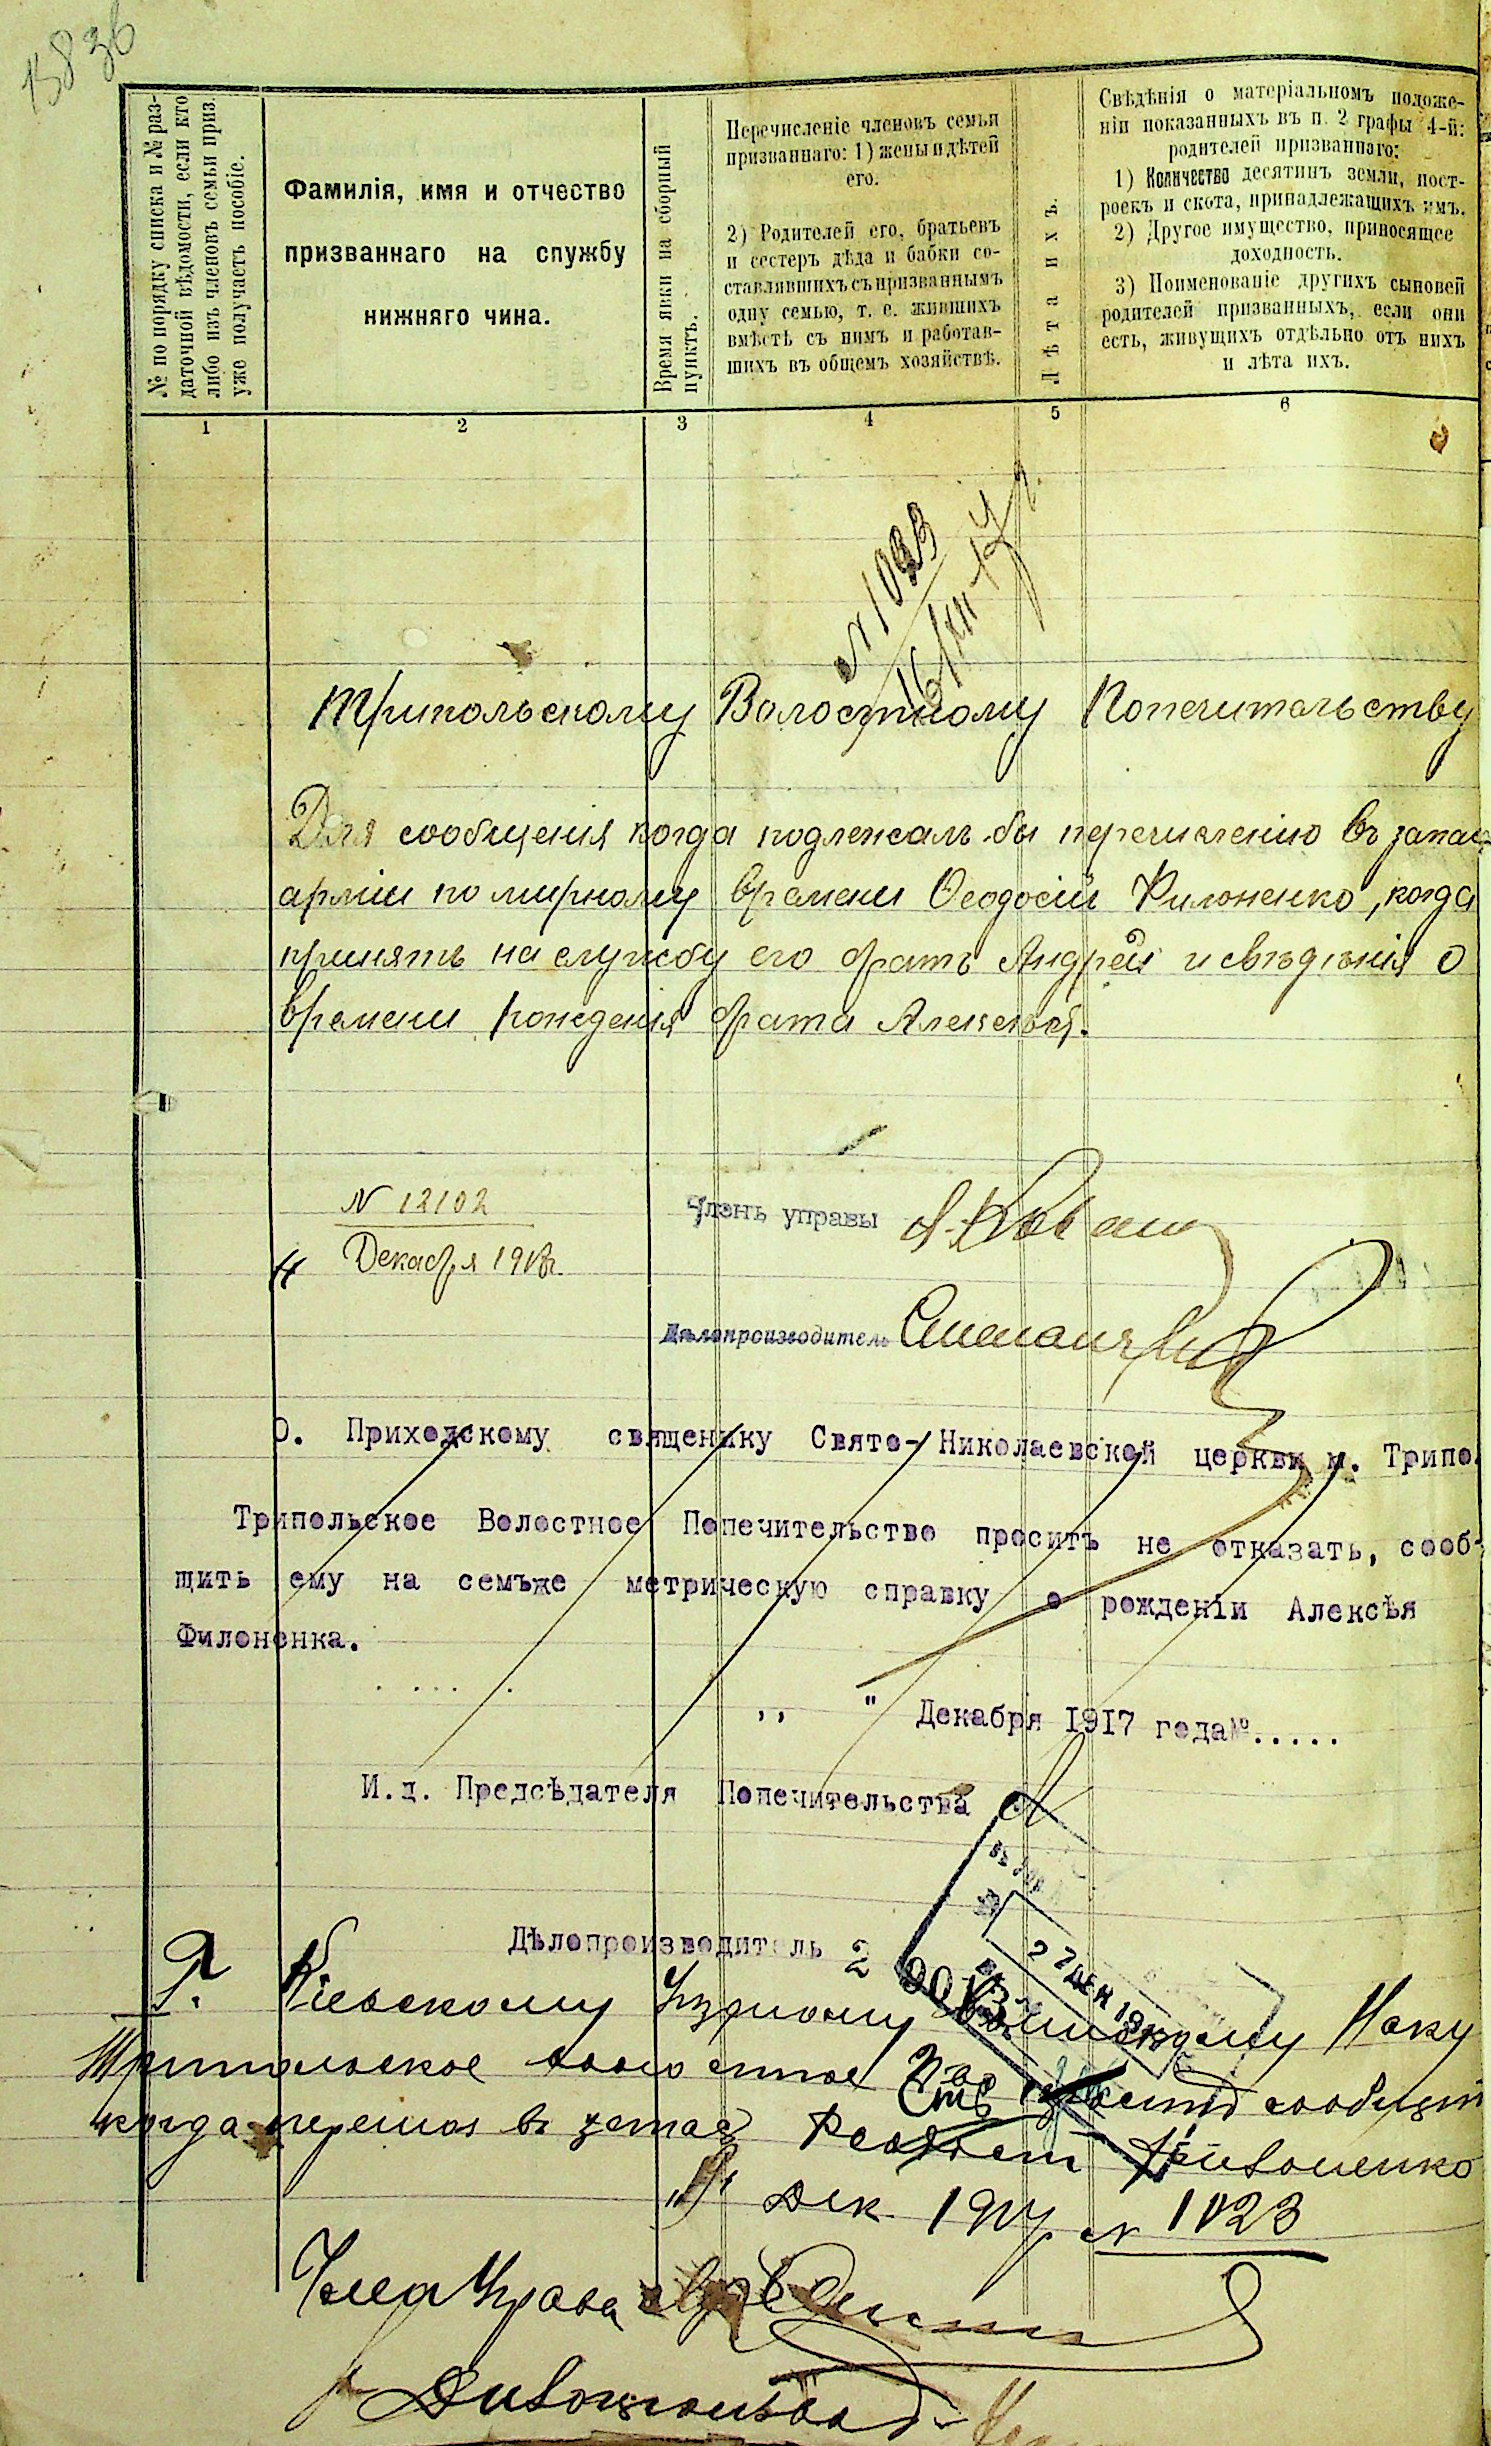 № по порядку списка и № раз-
даточной вѣдомости, если кто
либо изъ членовъ семьи приз.
уже получаетъ пособіе.
Фамилія, имя и отчество
призваннаго на службу
нижняго чина.
Время явки на сборный
пунктъ.
Перечисленіе членовъ семьи
призваннаго: 1) жены и дѣтей
его.
2) Родителей его, братьевъ
и сестеръ дѣда и бабки со-
ставлявшихъ съ призваннымъ
одну семью, т. е. жившихъ
вмѣстѣ съ нимъ и работав-
шихъ въ общемъ хозяйствѣ.
Лѣта ихъ.
Свѣдѣнія о матеріальномъ положе-
ніи показанныхъ въ п. 2 графы 4-й:
родителей призваннаго:
1) Количество десятинъ земли, пост-
роекъ и скота, принадлежащихъ имъ.
2) Другое имущество, приносящее
доходность.
3) Поименованіе другихъ сыновей
родителей призванныхъ, если они
есть, живущихъ отдѣльно отъ нихъ
и лѣта ихъ.
1 2 3 4 5 6
Трипольскому Волостному Попечительству
Для сообщенія когда подлежалъ бы перечисленію въ запасъ
арміи по мирному времени Ѳеодосій Филоненко, когда
принятъ на службу его братъ Андрей и свѣдѣнія о
времени рожденія брата Алексѣя.
N 12102
Декабря
Членъ управы
Дѣлопроизводитель
О. Приходскому священику Свято-Николаевской церкви м. Трипо
Трипольское Волостное Попечительство проситъ не отказать, сооб-
щить ему на семъже метрическую справку о рожденіи Алексѣя
Филоненка.
,, " Декабря 1917 года№.....
И.д. Предсѣдателя Попечительства
Дѣлопроизводитель
Р. Кіевскому Уѣздному Воинскому
Трипольское волостное сообщить
когда перешол въ запас Феодосій Филоненко
дек. 1917 г. N 1023